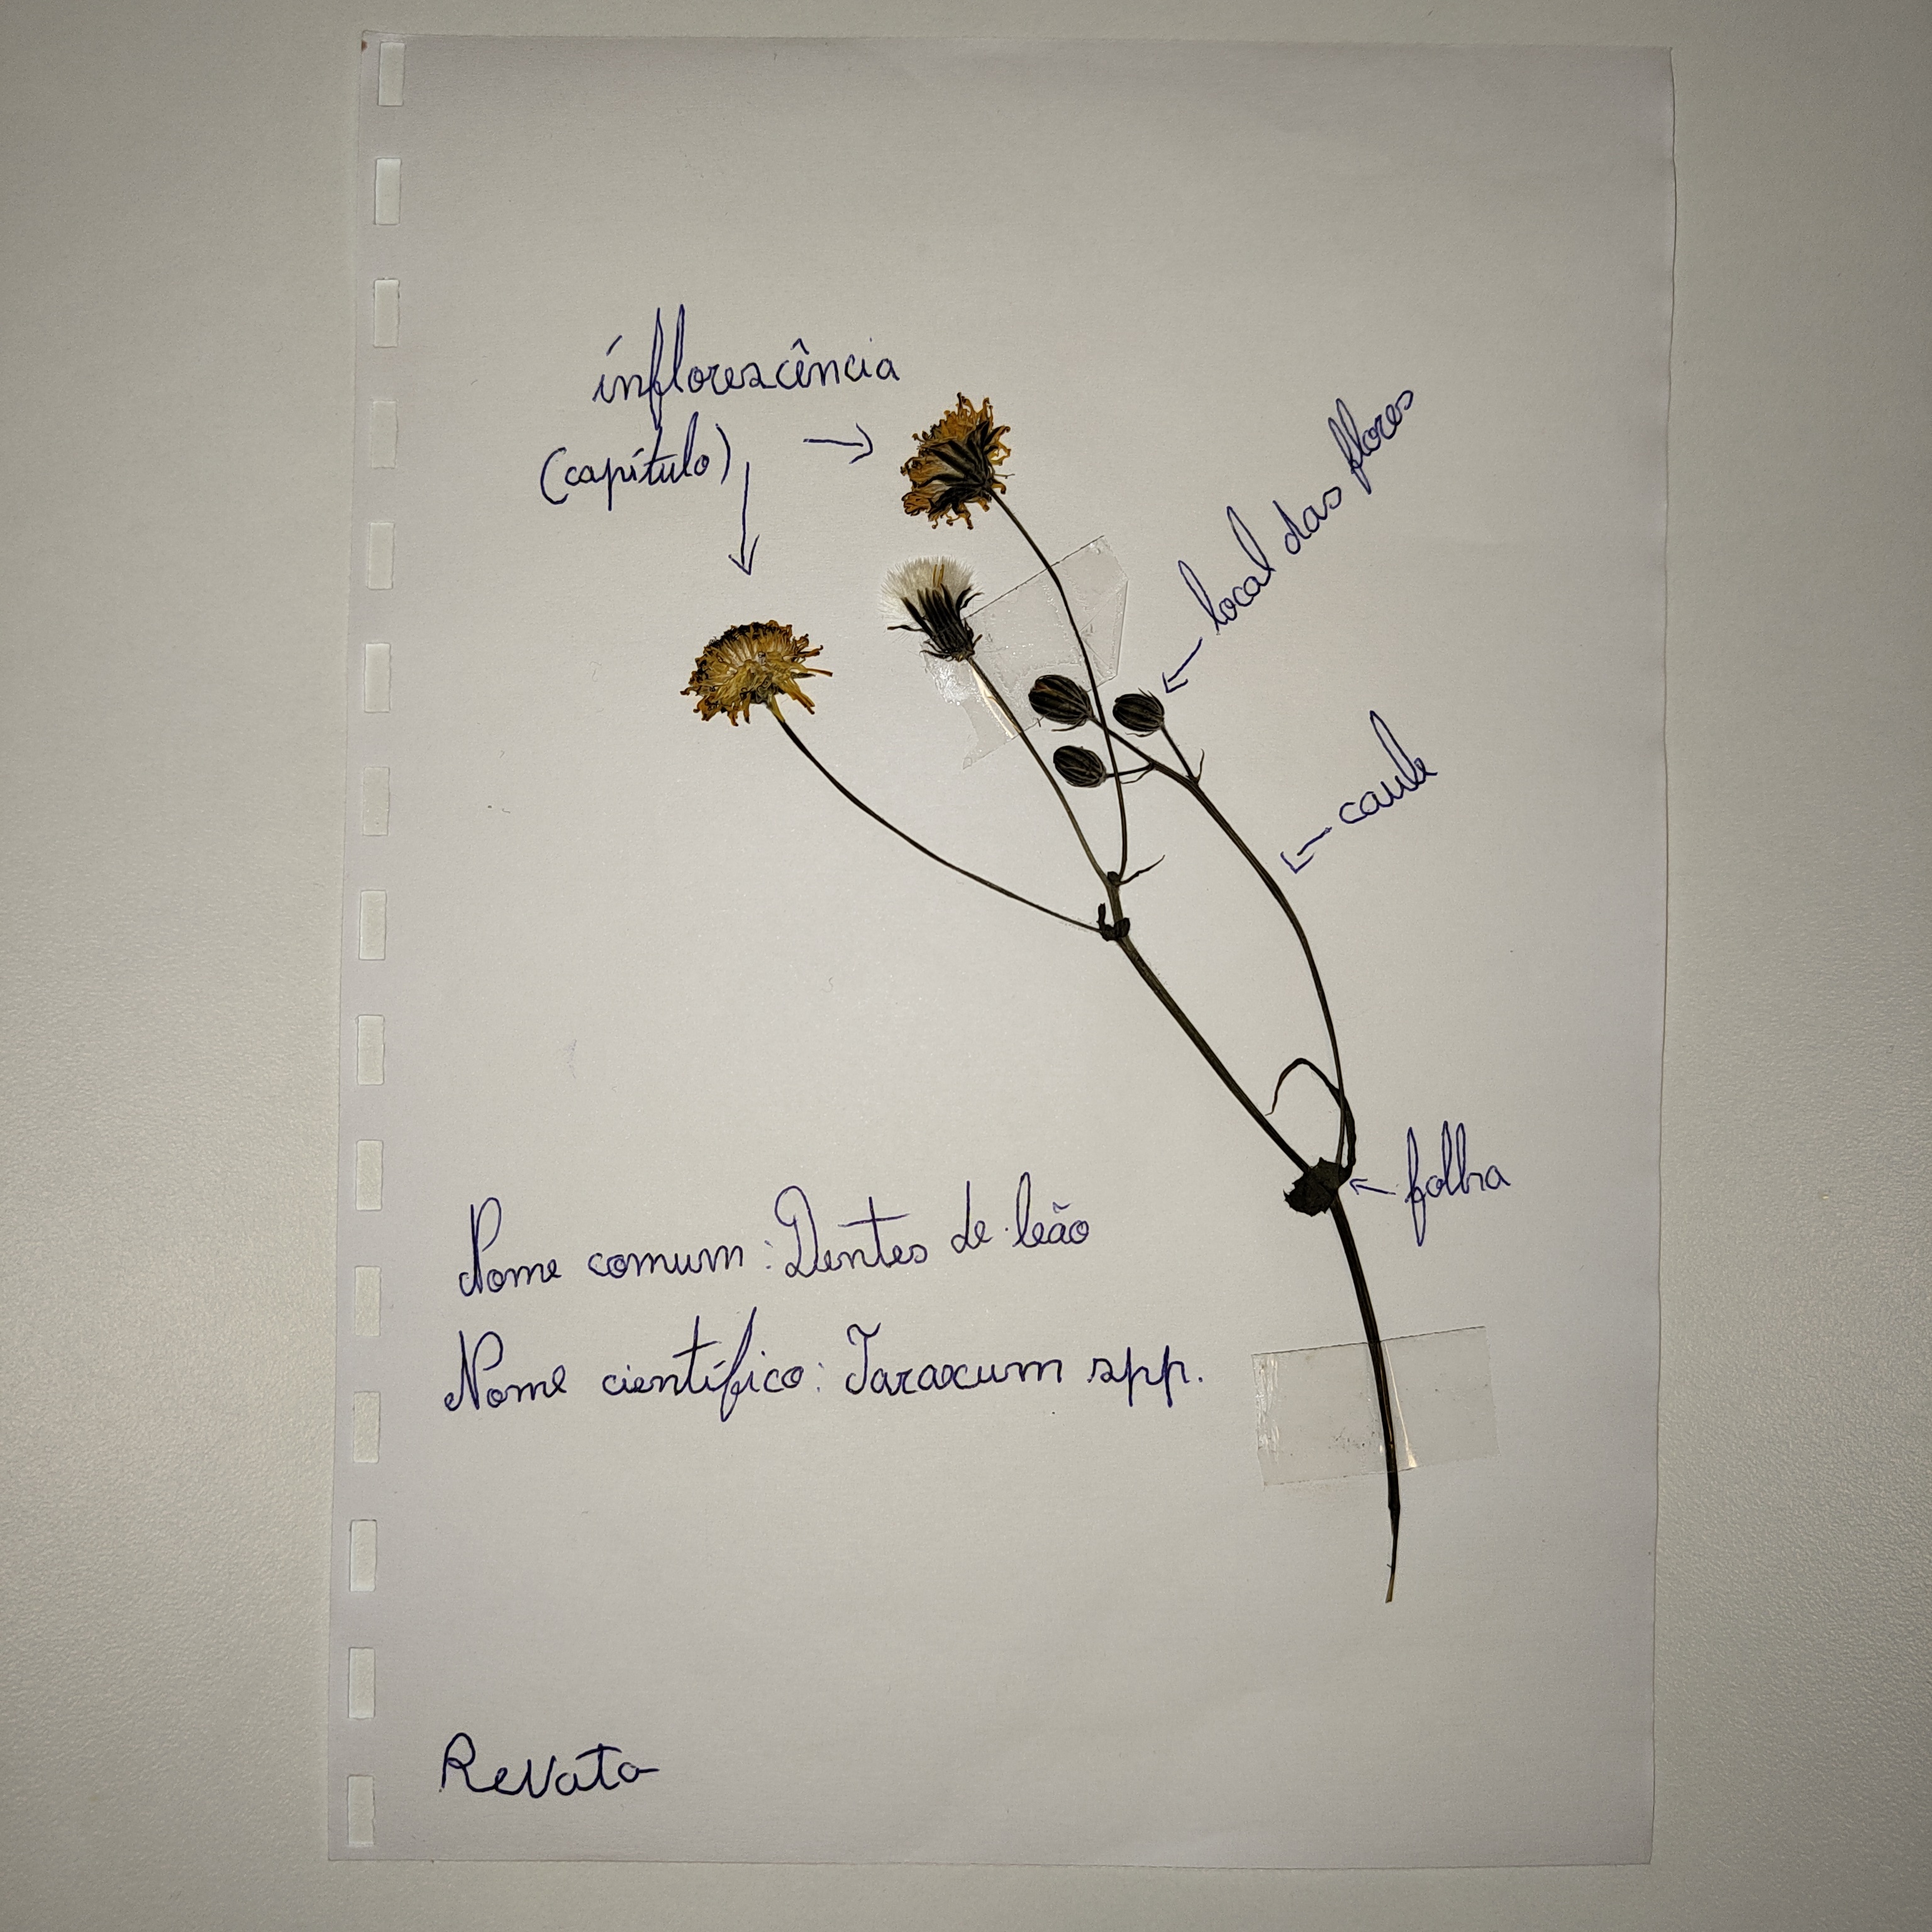 inflorescência
(capítulo)
local das flores
caule
folha
Nome comum: Dentes de leão
Nome científico: Taraxum spp.
Renata